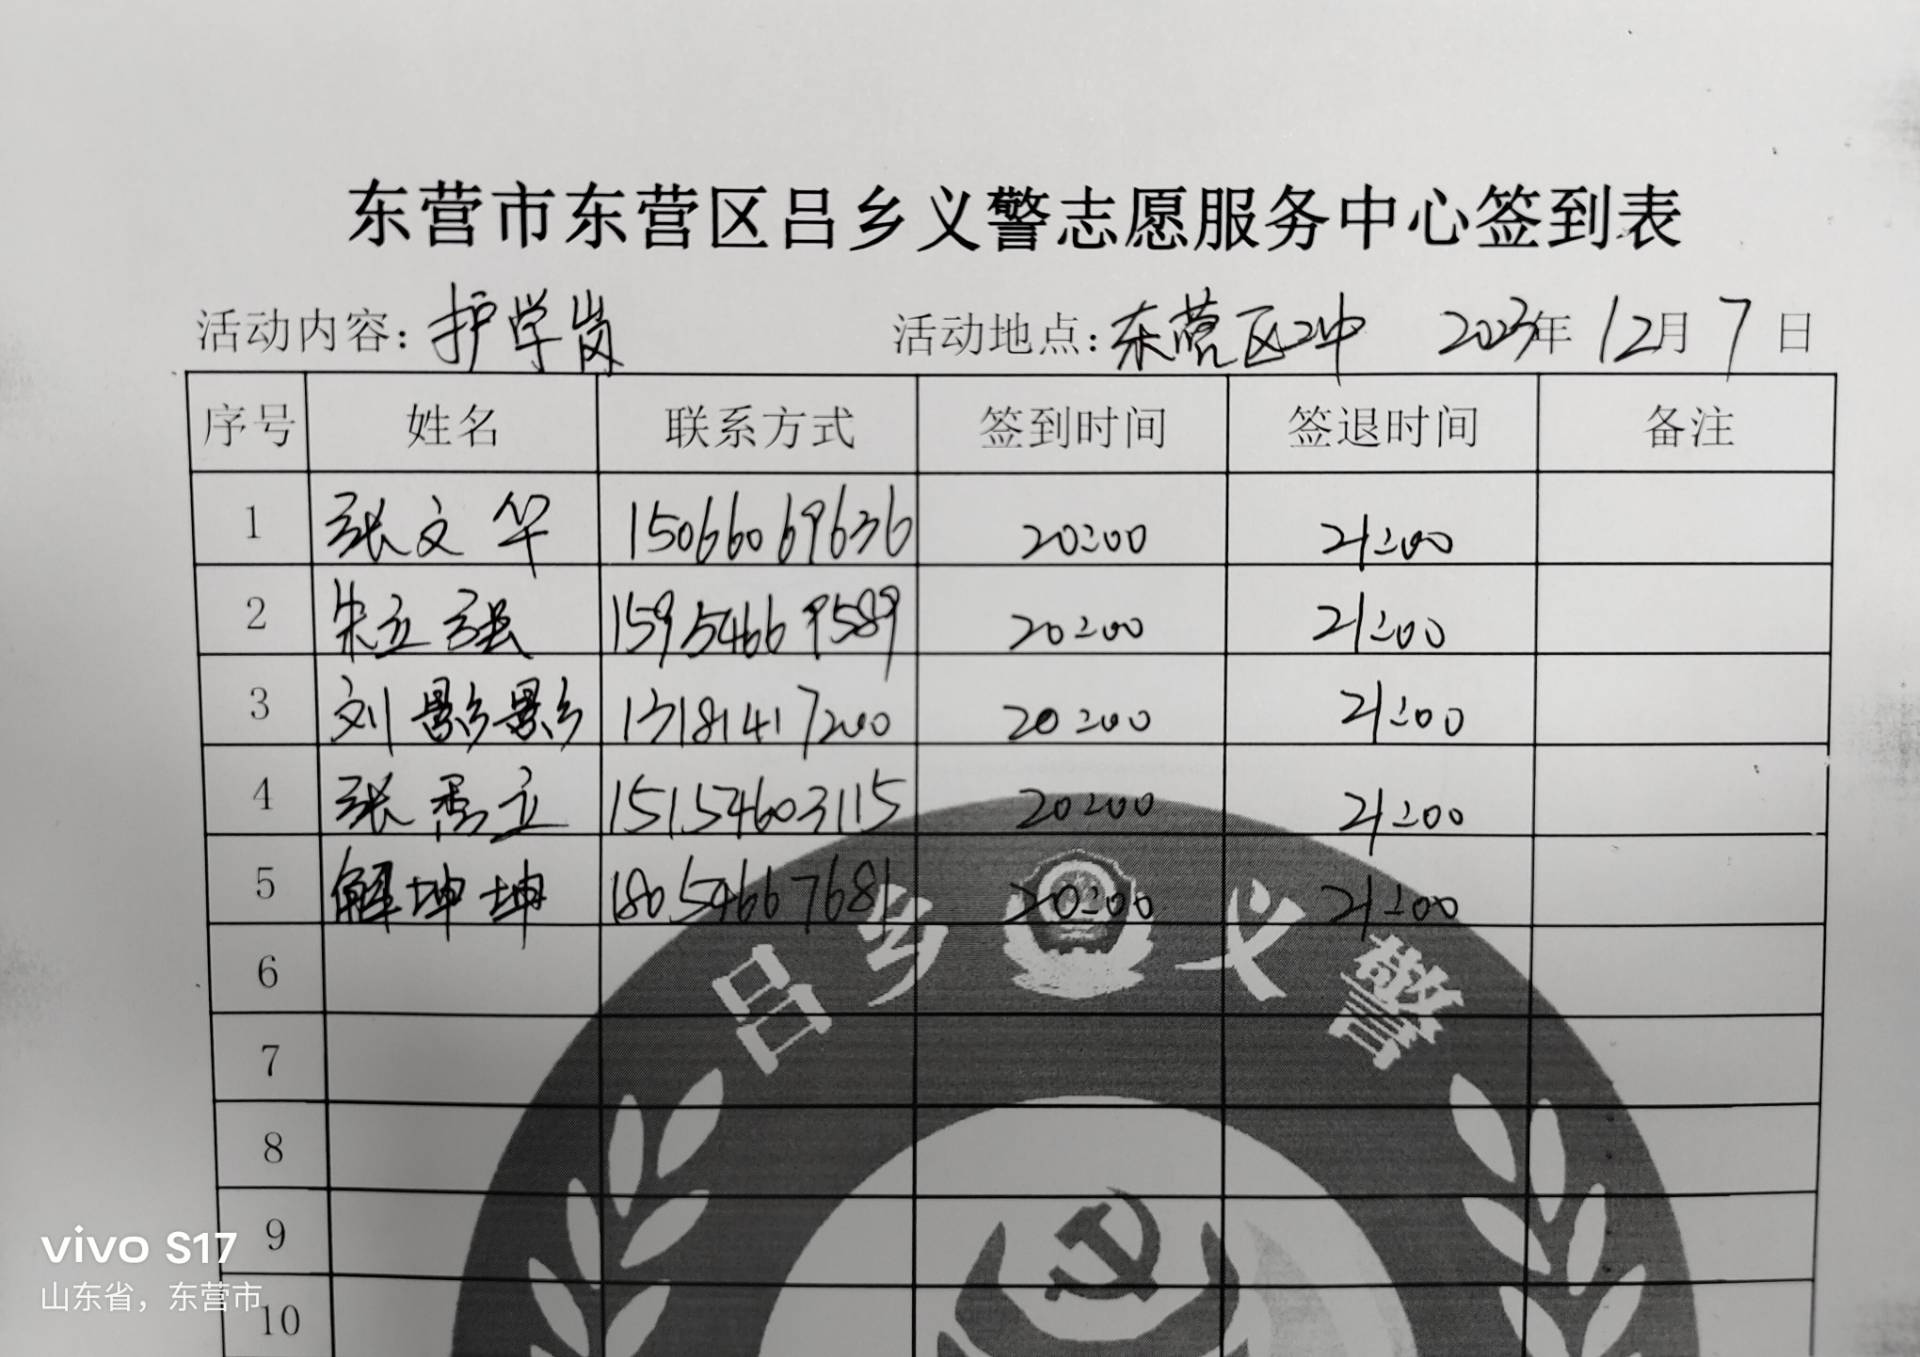 东营市东营区吕乡义警志愿服务中心签到表
活动内容：护学岗 活动地点：东营区2中 2023年12月7日
序号 姓名 联系方式 签到时间 签退时间 备注
1 张文华 15066069636 20:00 21:00
2 朱立强 15954669589 20:00 21:00
3 刘影影 13181417200 20:00 21:00
4 张秀立 15154603115 20:00 21:00
5 解坤坤 18054667681 20:00 21:00
吕乡义警
6
7
8
9
10
vivo S17
山东省，东营市